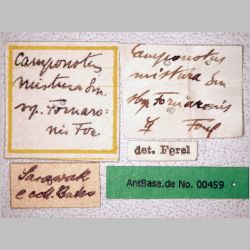 Camponotus
mistura Sm
ssp. Fornaro-
nis For.
Camponotus
mistura Sm
ssp Fornaronis
☿ Forel
det. Forel
Sarawak
e coll. Bates
AntBase.de No. 00459